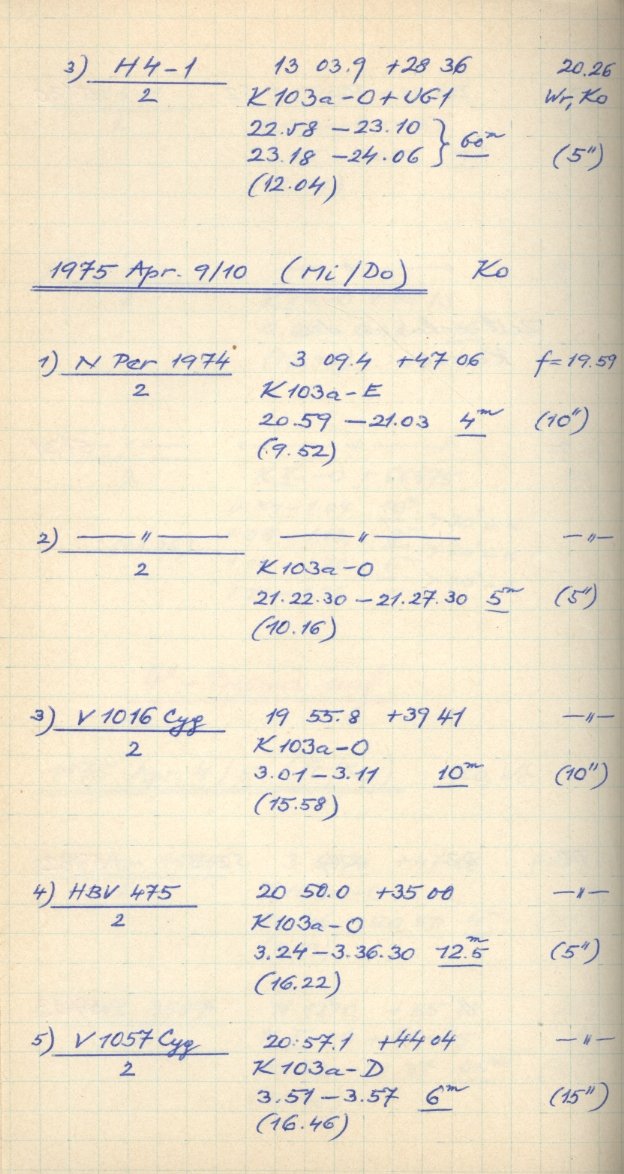 3) H4-1 13 03.9 +28 36 20.26
2 K103a-O+UG1 Wr, Ko
22.58 - 23.10
23.18 - 24.06 } 60m (5")
(12.04)
1975 Apr. 9/10 (Mi/Do) Ko
1) N Per 1974 3 09.4 +47 06 f=19.59
2 K103a-E
20.59 - 21.03 4m (10")
(9.52)
2) —"— —"— —"—
2 K103a-O
21.22.30 - 21.27.30 5m (5")
(10.16)
3) V1016 Cyg 19 55.8 +39 41 —"—
2 K103a-O
3.01 - 3.11 10m (10")
(15.58)
4) HBV 475 20 50.0 +35 00 —"—
2 K103a-O
3.24 - 3.36.30 12.5m (5")
(16.22)
5) V1057 Cyg 20 57.1 +44 04 —"—
2 K103a-D
3.51 - 3.57 6m (15")
(16.46)